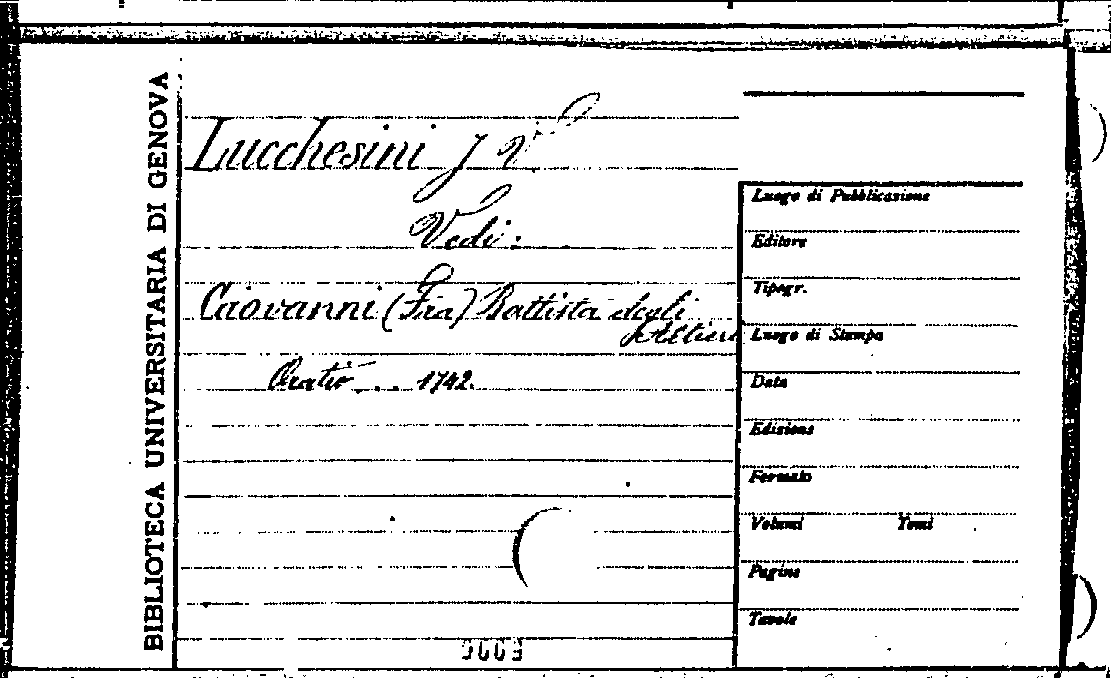 BIBLIOTECA UNIVERSITARIA DI GENOVA
Lucchesini J V
Vedi:
Giovanni (Fra) Battista degli
Altieri
Oratio . . . 1742.
Luogo di Pubblicazione
Editore
Tipogr.
Luogo di Stampa
Data
Edizione
Formato
Volumi Tomi
Pagine
Tavole